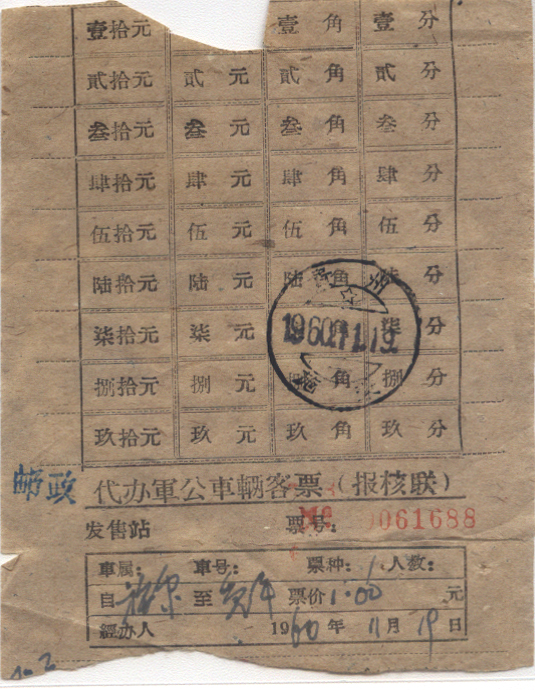 壹拾元 壹角 壹分
贰拾元 贰元 贰角 贰分
叁拾元 叁元 叁角 叁分
肆拾元 肆元 肆角 肆分
伍拾元 伍元 伍角 伍分
陆拾元 陆元 陆角 陆分
柒拾元 柒元 角 柒分
捌拾元 捌元 角 捌分
玖拾元 玖元 玖角 玖分
1960.11.19
邮政 代办軍公車輛客票（报核联）
发售站 票号： № 0061688
車属： 車号： 票种： 人数：
自 至 票价 1.00 元
經办人 1960年 11月 19日